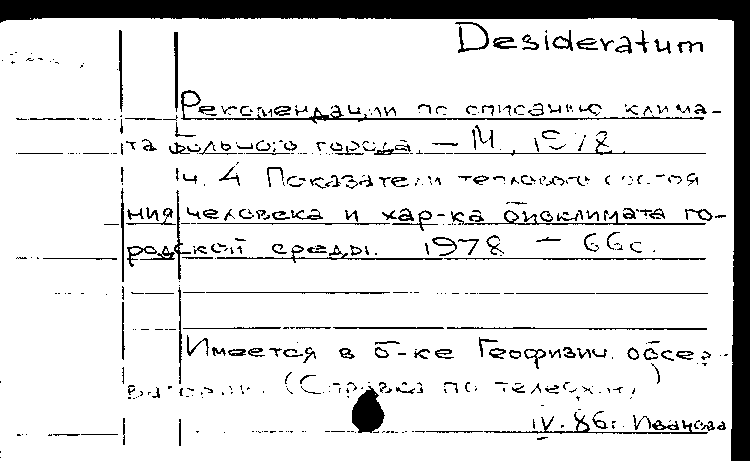 Desideratum
Рекомендации по описанию клима-
та большого города. — М., 1978.
ч. 4 Показатели теплового состоя
ния человека и хар-ка биоклимата го-
родской среды. 1978 — 66с.
Имеется в б-ке Геофизич. обсер-
ватории. (Справка по телефону)
IV. 86г. Иванова